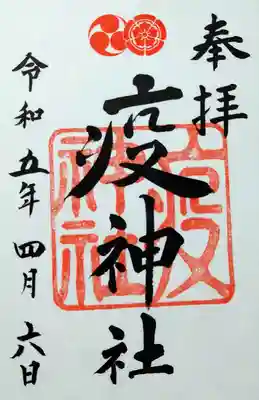 奉拝
疫神社
疫神社
令和五年四月六日